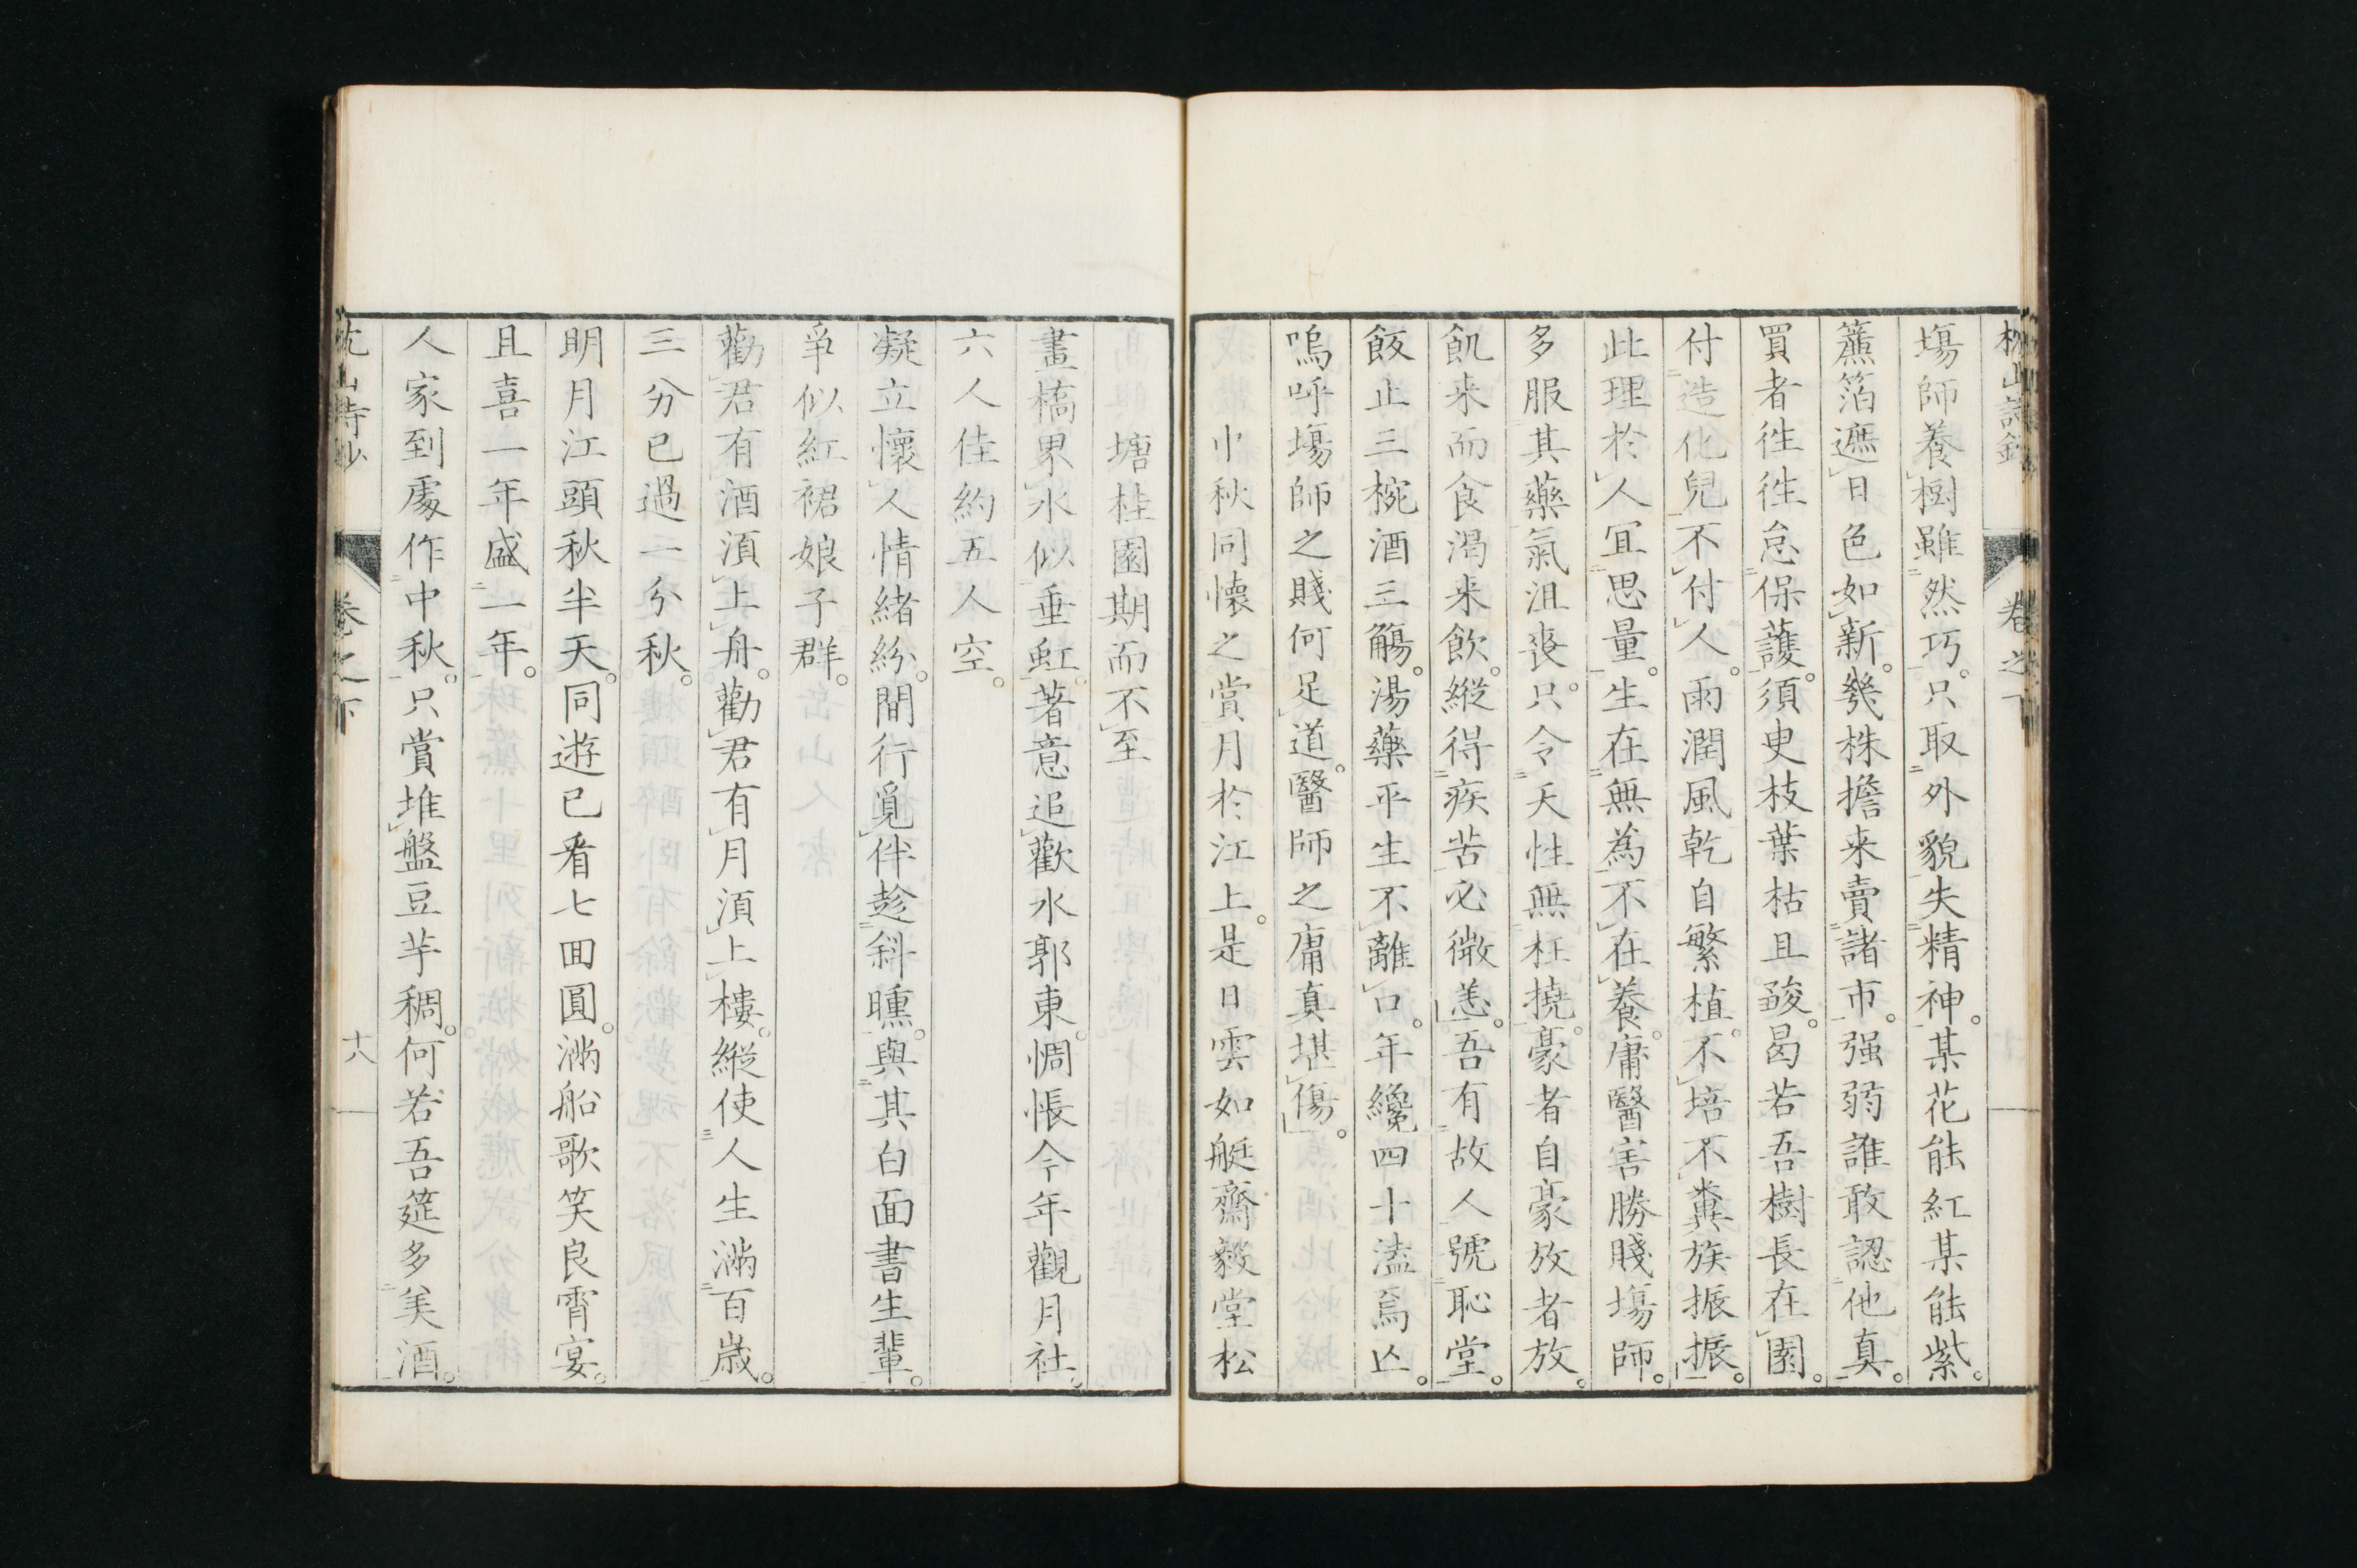 塲師養樹雖然巧。只取外貌失精神。某花能紅某能紫。
簾箔遮日色如新。幾株擔来賣諸市。强弱誰敢認他真。
買者徃徃怠保護。須臾枝葉枯且皴。曷若吾樹長在園。
付造化兒不付人。雨潤風乾自繁植。不培不糞族振振。
此理於人冝思量。生在無為不在養。庸醫害勝賤塲師。
多服其藥氣沮喪。只令天性無枉撓。豪者自豪放者放。
飢来而食渴来飲。縱得疾苦必微恙。吾有故人號恥堂。
飯止三椀酒三觴。湯藥平生不離口。年纔四十溘焉亾。
嗚呼塲師之賤何足道。醫師之庸真堪傷。
中秋同懷之賞月於江上。是日雲如艇齋毅堂松
塘桂園期而不至
畫橋界水似垂虹。著意追歡水郭東。惆悵今年觀月社。
六人佳約五人空。
凝立懷人情緒紛。間行覓伴趁斜曛。與其白面書生輩。
爭似紅裙娘子群。
勸君有酒湏上舟。勸君有月湏上樓。縱使人生滿百歳。
三分已過一分秋。
明月江頭秋半天。同遊已看七回圓。滿船歌笑良宵宴。
且喜一年盛一年。
人家到處作中秋。只賞堆盤豆芋稠。何若吾筵多美酒。
卷之下
十八